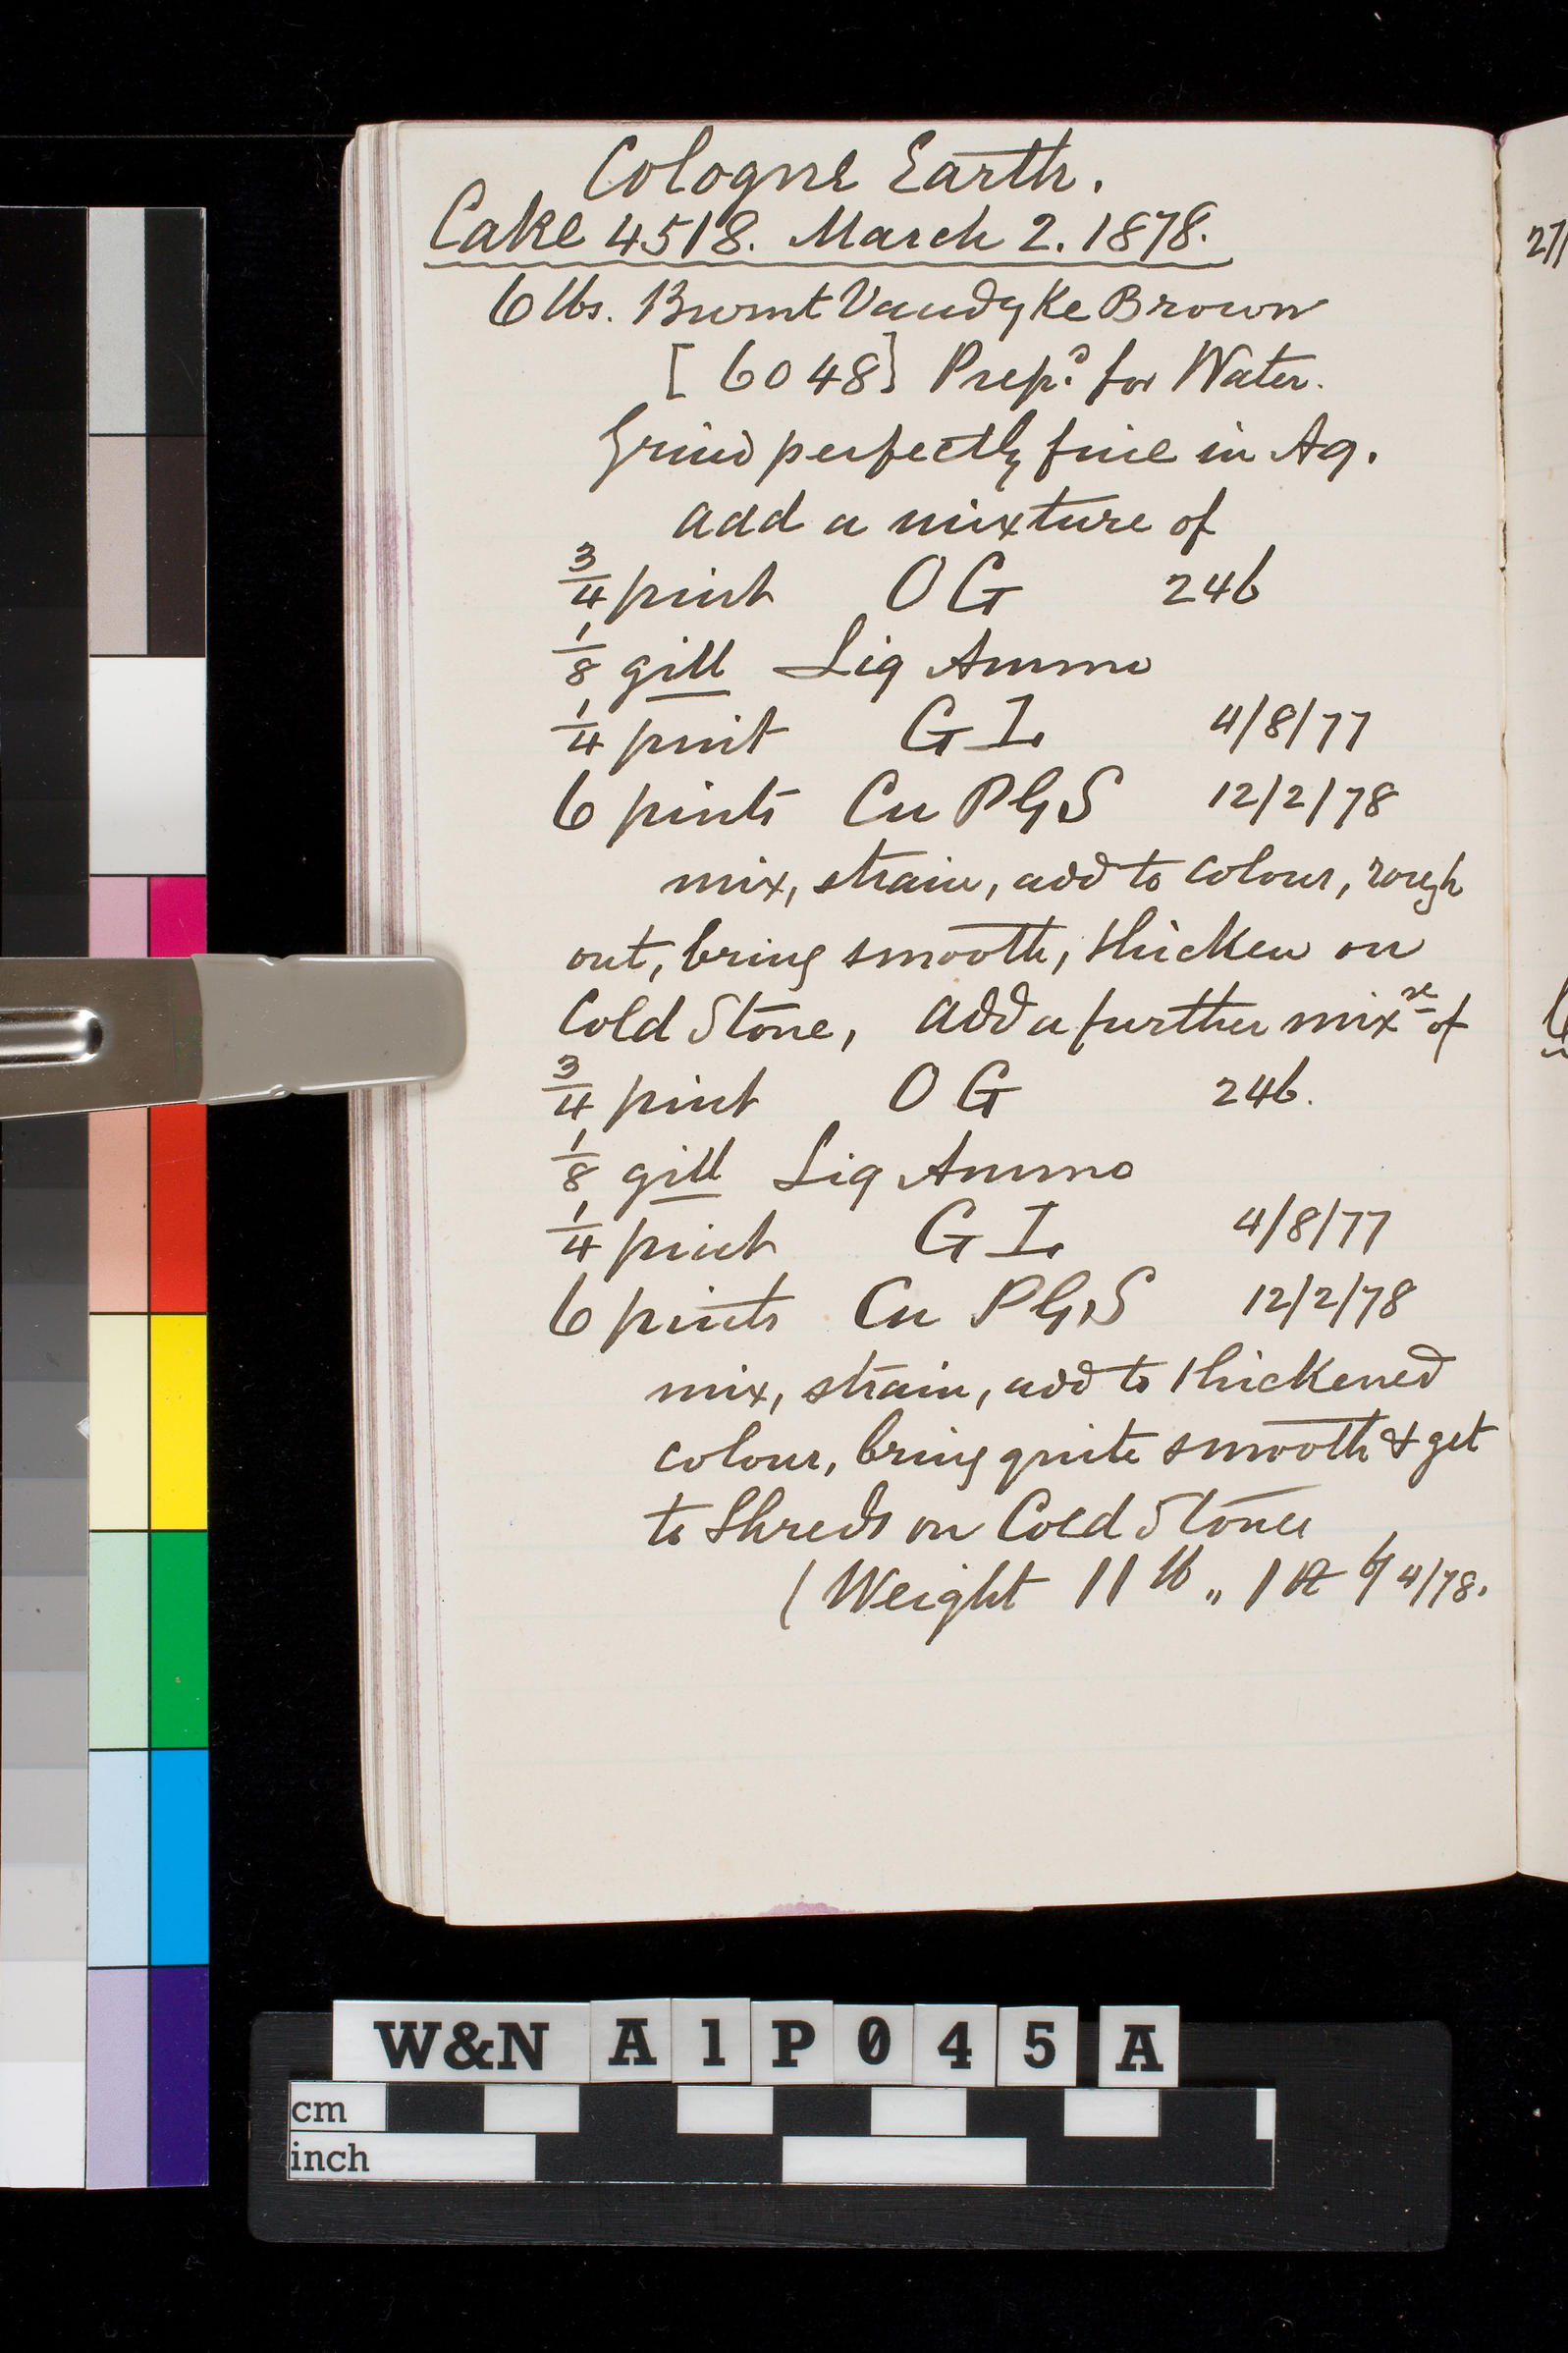 Cologne Earth.
Cake 4518. March 2. 1878.
6 lbs. Burnt Vandyke Brown
[6048] Prepd. for Water.
Grind perfectly fine in Aq.
add a mixture of
3/4 pint OG 246
1/8 gill Liq Ammo
1/4 pint GI. 4/8/77
6 pints Cu PGS 12/2/78
mix, strain, add to colour, rough
out, bring smooth, thicken on
Cold Stone, add a further mixre of
3/4 pint OG 246.
1/8 gill Liq Ammo
1/4 pint GI. 4/8/77
6 pints Cu PGS 12/2/78
mix, strain, add to thickened
colour, bring quite smooth & get
to Shreds on Cold Stones
(Weight 11 lb ,, 4/78.
27
W&N A1P045A
cm
inch